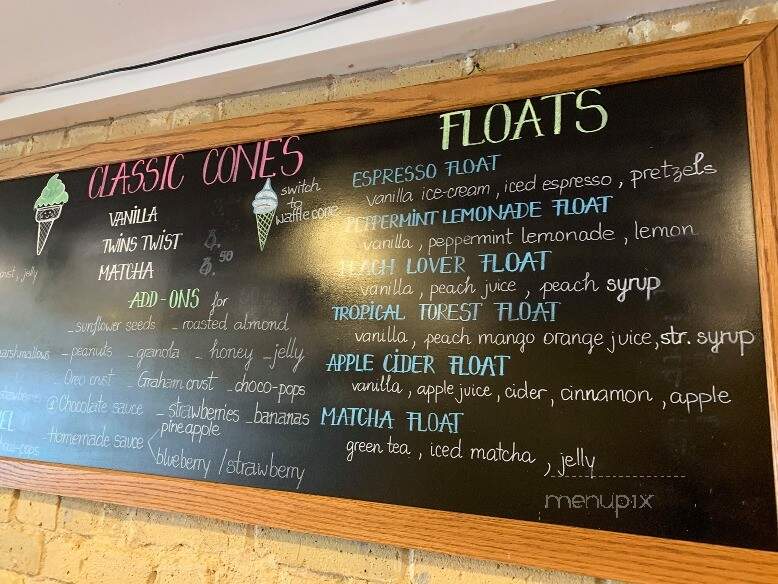 CLASSIC CONES
switch
to
waffle cone
VANILLA
TWINS TWIST
MATCHA
.50
jelly
ADD-ONS for
- sunflower seeds - roasted almond
marshmallows - peanuts - granola - honey - jelly
- Oreo crust - Graham crust - choco-pops
Chocolate sauce - strawberries - bananas
pineapple
Homemade sauce
blueberry / strawberry
FLOATS
ESPRESSO FLOAT
vanilla ice-cream, iced espresso, pretzels
PEPPERMINT LEMONADE FLOAT
vanilla, peppermint lemonade, lemon
PEACH LOVER FLOAT
vanilla, peach juice, peach syrup
TROPICAL FOREST FLOAT
vanilla, peach mango orange juice, str. syrup
APPLE CIDER FLOAT
vanilla, apple juice, cider, cinnamon, apple
MATCHA FLOAT
green tea, iced matcha, jelly
menupix